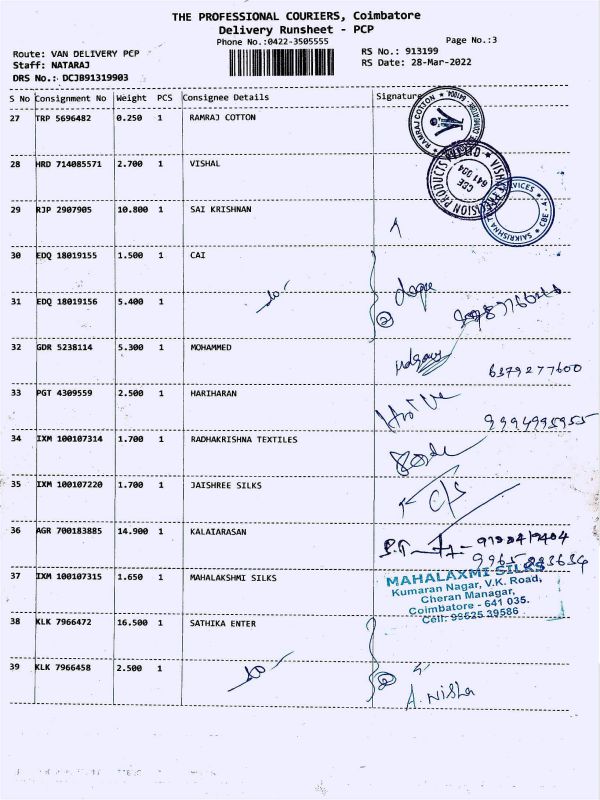 THE PROFESSIONAL COURIERS, Coimbatore
Delivery Runsheet - PCP
Phone No.:0422-3505555
Page No.:3
Route: VAN DELIVERY PCP
RS No.: 913199
Staff: NATARAJ
RS Date: 28-Mar-2022
DRS No.: DCJB91319903
S No Consignment No Weight PCS Consignee Details Signature
27 TRP 5696482 0.250 1 RAMRAJ COTTON
RAMRAJ COTTON
28 HRD 714085571 2.700 1 VISHAL
CBE 641 004
29 RJP 2907905 10.800 1 SAI KRISHNAN
SAIKRISHNA
CBE
30 EDQ 18019155 1.500 1 CAI
31 EDQ 18019156 5.400 1
2
32 GDR 5238114 5.300 1 MOHAMMED
6379277600
33 PGT 4309559 2.500 1 HARIHARAN
9994995955
34 IXM 100107314 1.700 1 RADHAKRISHNA TEXTILES
35 IXM 100107220 1.700 1 JAISHREE SILKS
36 AGR 700183885 14.900 1 KALAIARASAN
37 IXM 100107315 1.650 1 MAHALAKSHMI SILKS
MAHALAXMI SILKS
Kumaran Nagar, V.K. Road,
Cheran Managar,
Coimbatore - 641 035.
Cell: 99625 39586
38 KLK 7966472 16.500 1 SATHIKA ENTER
39 KLK 7966458 2.500 1
2
A. Nisha